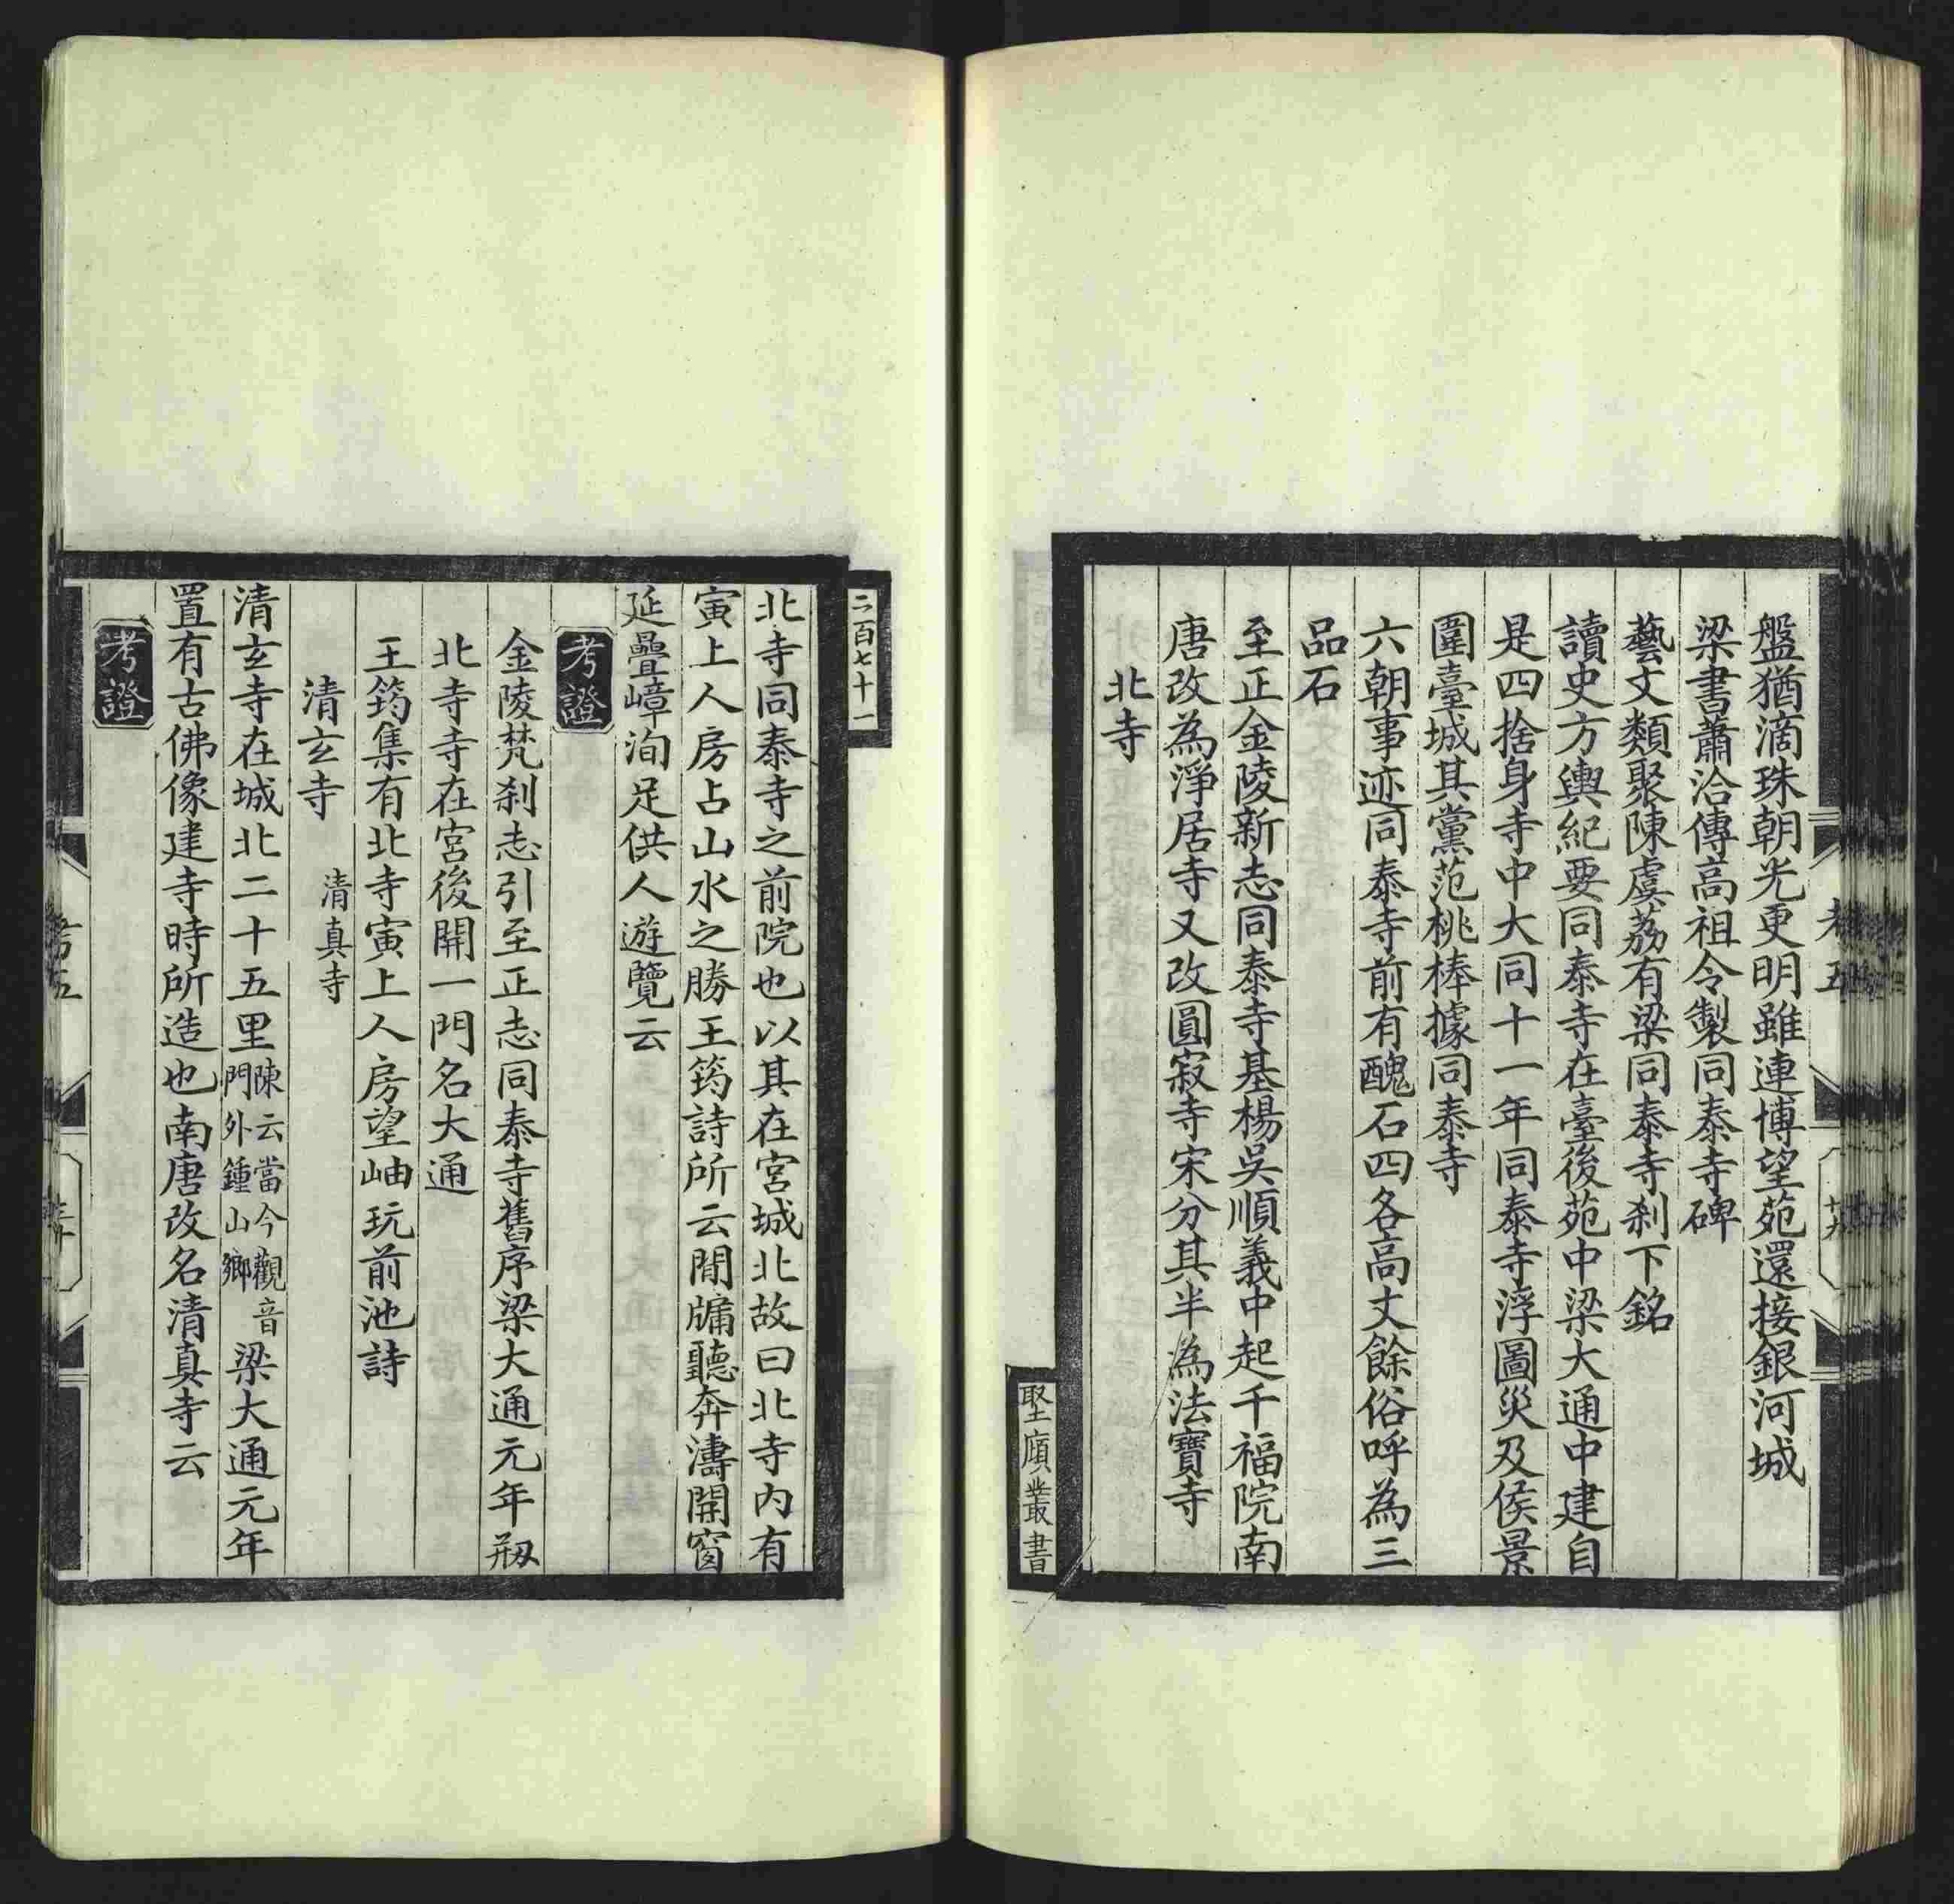 盤猶滴珠朝光更明雖連博望苑還接銀河城
梁書蕭洽傳高祖令製同泰寺碑
藝文類聚陳虞荔有梁同泰寺剎下銘
讀史方輿紀要同泰寺在臺後苑中梁大通中建自
是四捨身寺中大同十一年同泰寺浮圖災及侯景
圍臺城其黨范桃棒據同泰寺
六朝事迹同泰寺前有醜石四各高丈餘俗呼為三
品石
至正金陵新志同泰寺基楊吳順義中起千福院南
唐改為淨居寺又改圓寂寺宋分其半為法寶寺
北寺
堅頎叢書
二百七十一
北寺同泰寺之前院也以其在宮城北故曰北寺内有
寅上人房占山水之勝王筠詩所云閒牗聽奔濤開窗
延疊嶂洵足供人遊覽云
考證
金陵梵刹志引至正志同泰寺舊序梁大通元年剏
北寺寺在宮後開一門名大通
王筠集有北寺寅上人房望岫玩前池詩
清玄寺 清真寺
清玄寺在城北二十五里陳云當今觀音門外鍾山鄉梁大通元年
置有古佛像建寺時所造也南唐改名清真寺云
考證